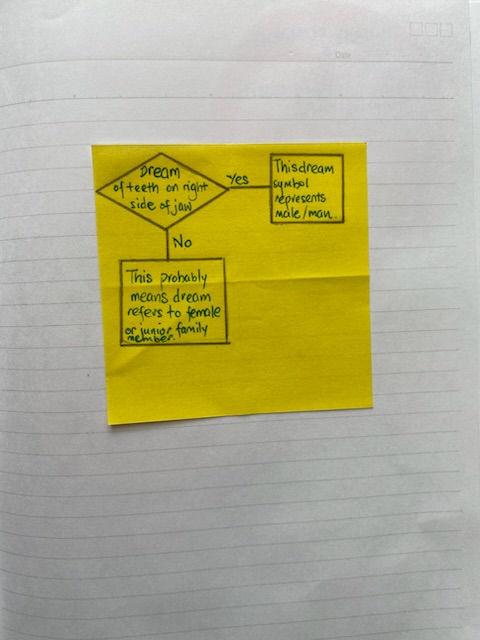 Date
Dream
of teeth on right
side of jaw
Yes
This dream
symbol
represents
male/man.
No
This probably
means dream
refers to female
or junior family
member.